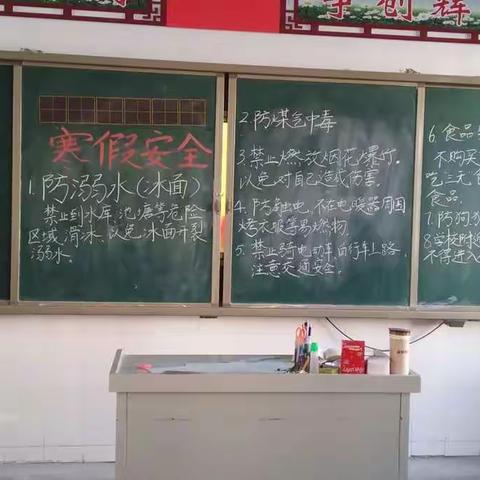 争创辉
寒假安全
1.防溺水(冰面)
禁止到水库、池塘等危险
区域滑冰,以免冰面开裂
溺水。
2.防煤气中毒
3.禁止燃放烟花爆竹。
以免对自己造成伤害。
4.防触电,不在电暖器周围
烤衣服等易燃物。
5.禁止骑电动车、自行车上路,
注意交通安全。
6.食品
不购买
吃三无食
食品.
7.防狗
8.学校
不得进入